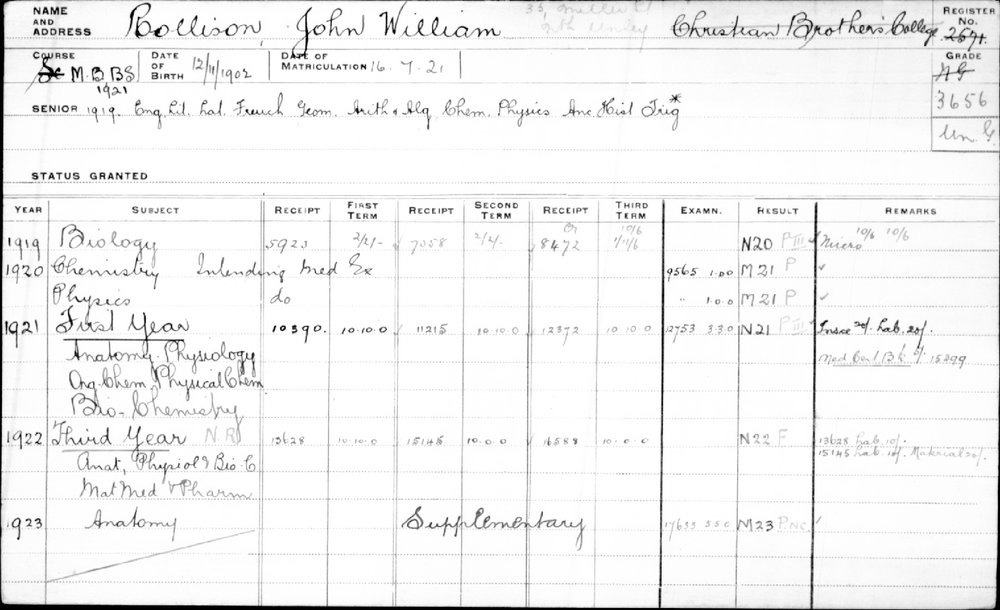 NAME AND ADDRESS Rollison, John William Christian Brothers College REGISTER No. 2571.
COURSE Sc M.B B.S. 1921 DATE OF BIRTH 12/11/1902 DATE OF MATRICULATION 16.7.21 GRADE
SENIOR 1919. Eng. Lit. Lat. French Geom. Arith & Alg Chem. Physics Anc. Hist Trig* 3656
Un. G.
STATUS GRANTED
YEAR SUBJECT RECEIPT FIRST TERM RECEIPT SECOND TERM RECEIPT THIRD TERM EXAMN. RESULT REMARKS
1919 Biology 5923 2/2/- 7058 2/2/- 8472 10/6 N20 P III Micro 10/6 10/6
1920 Chemistry Intending Med Ex 9565 1.0.0 M21 P
Physics do " 1.0.0 M21 P
1921 First Year 10390. 10.10.0 11215 10.10.0 12372 10.10.0 12753 3.3.0 N21 P III Insce 20/. Lab. 20/.
Anatomy. Physiology Med. Cert. Bk 5/. 15299
Org. Chem. Physical Chem
Bio-Chemistry
1922 Third Year N.R. 13628 10.10.0 15145 10.0.0 16588 10.0.0 N22 F 13628 Lab. 10/.
Anat, Physiol & Bio-C 15145 Lab. 10/. Material 20/.
Mat Med & Pharm
1923 Anatomy Supplementary 17633 5.5.0 M23 P.NC.